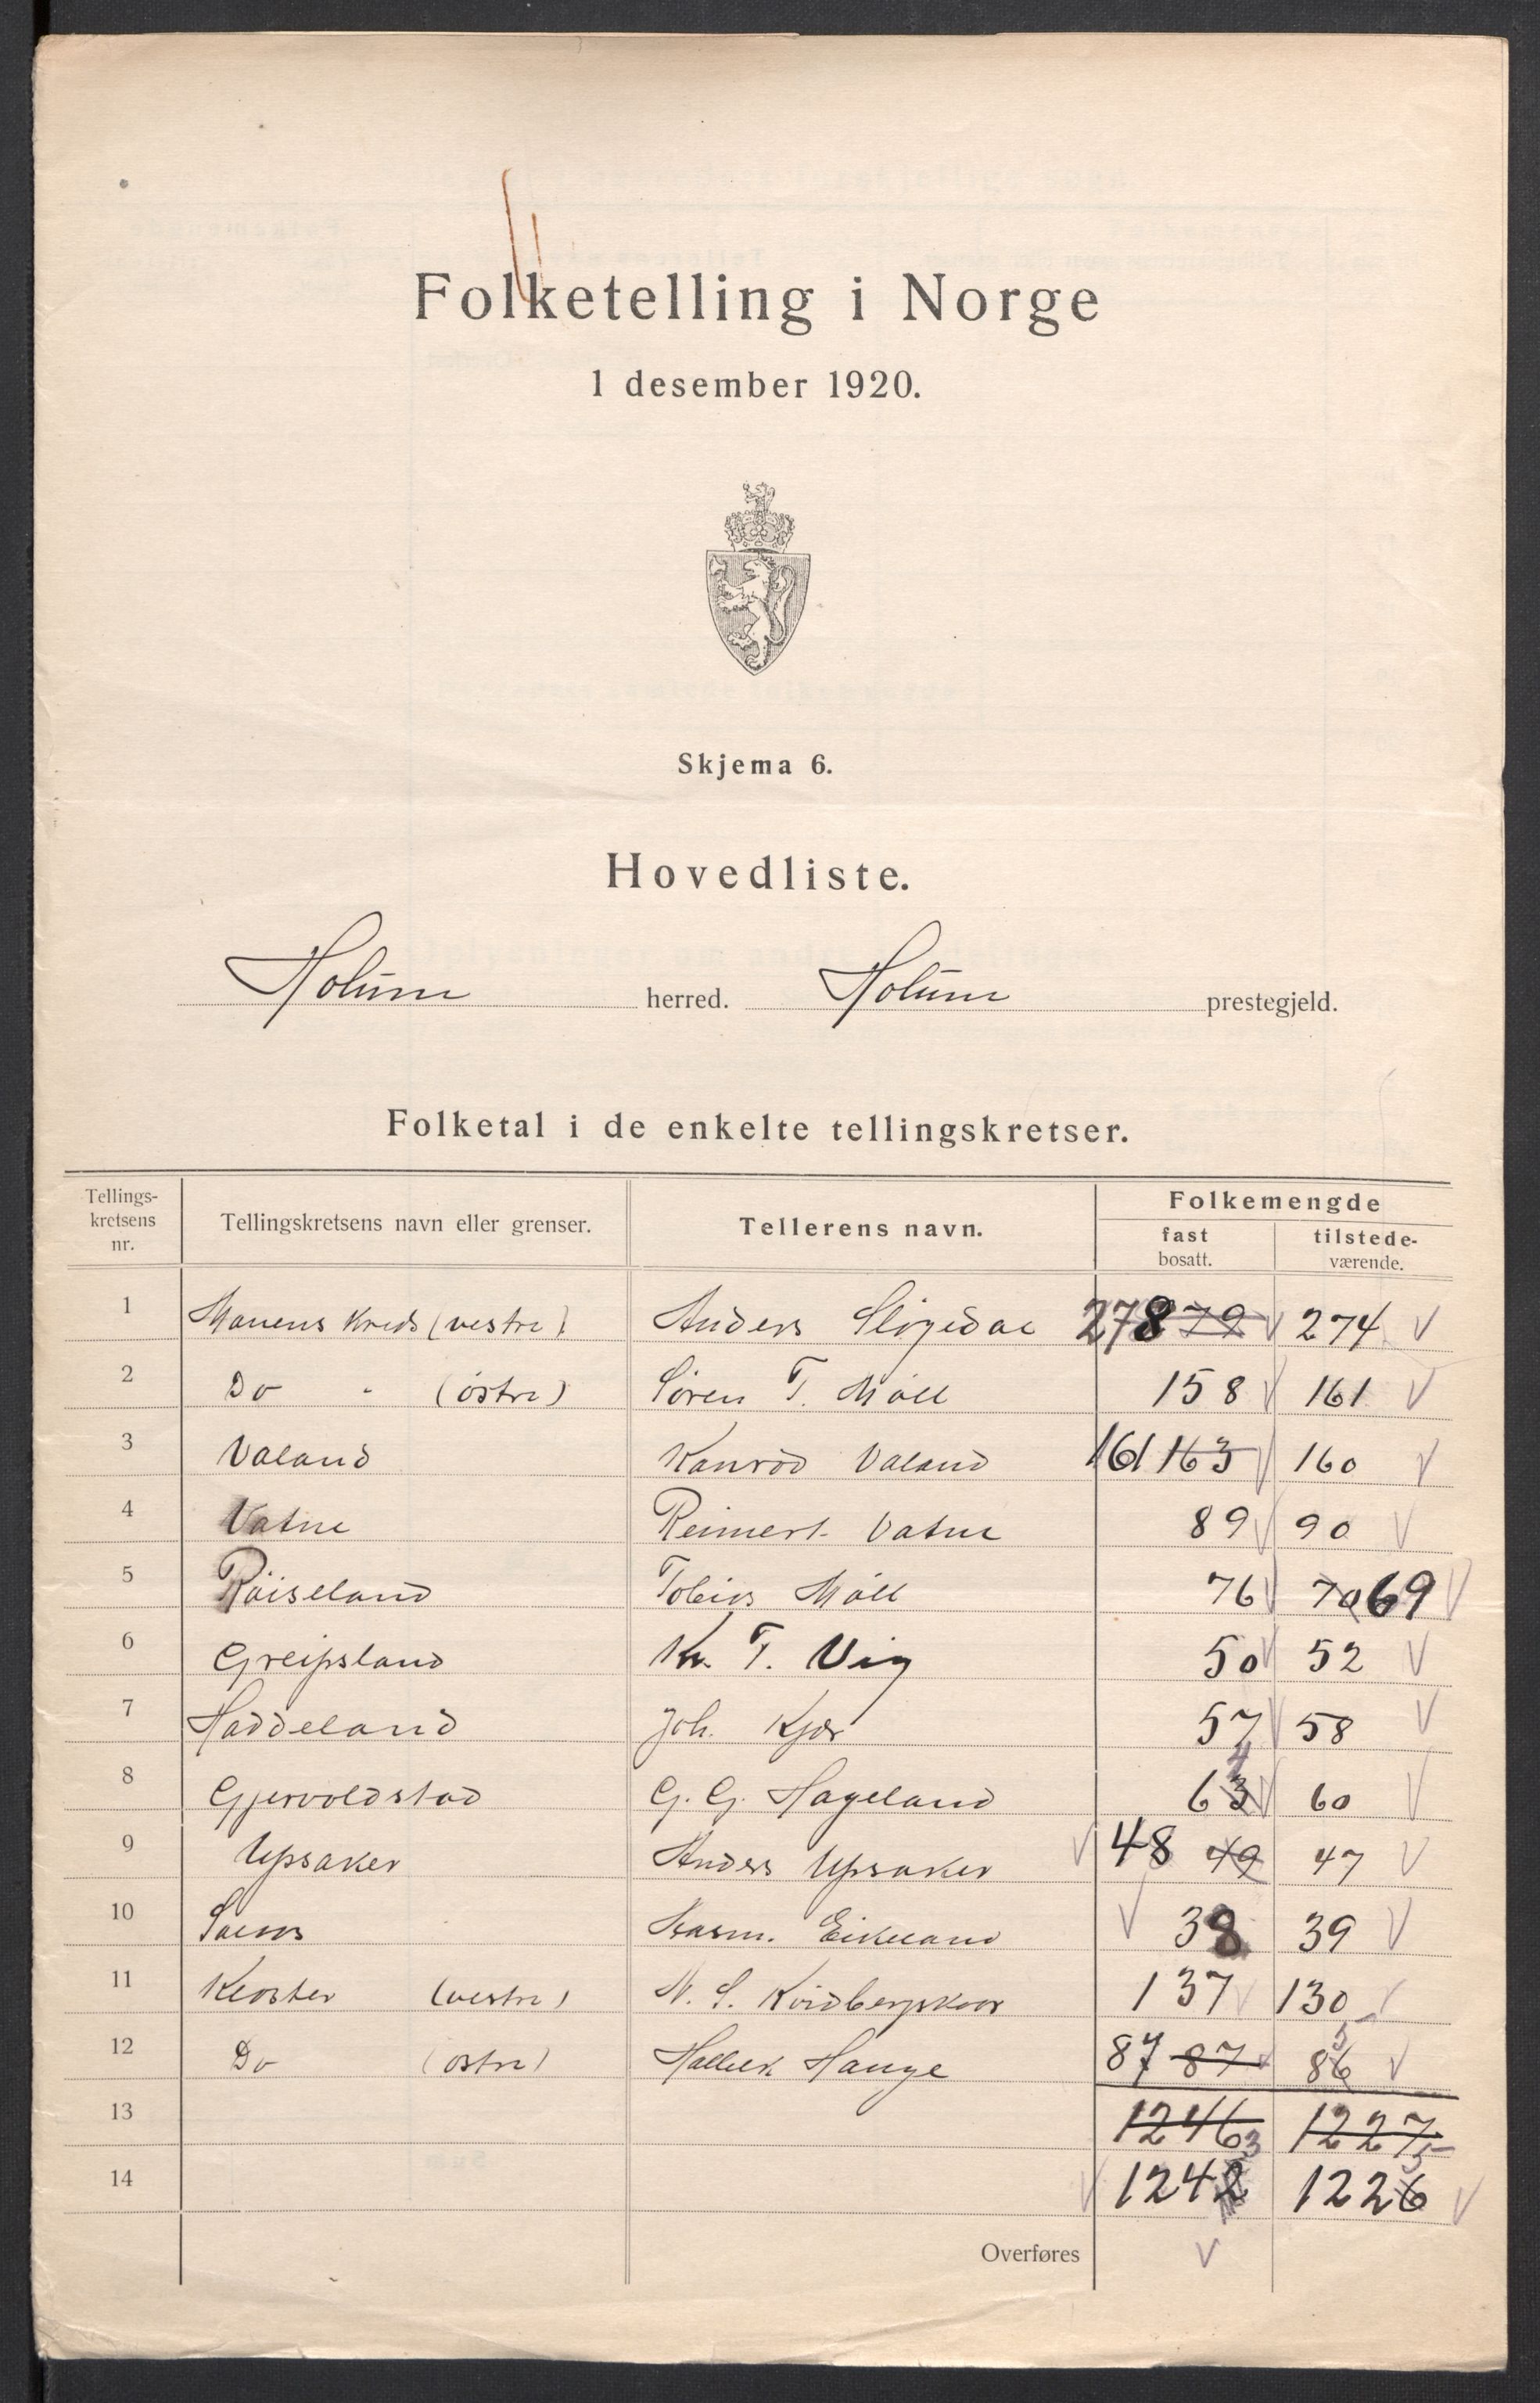 Folketelling i Norge
1 desember 1920.
Skjema 6.
Hovedliste.
Holum herred. Holum prestegjeld.
Folketal i de enkelte tellingskretser.
Tellings-kretsens nr. Tellingskretsens navn eller grenser. Tellerens navn. Folkemengde
fast bosatt. tilstede-værende.
1 Manens Kreds (vestre) Anders Sløgedal 278 79 274
2 Do " (østre) Søren T. Møll 158 161
3 Valand Konrad Valand 161 163 160
4 Vatne Reimert Vatne 89 90
5 Røiseland Tobias Møll 76 70 69
6 Greipsland Kr. T. Vig 50 52
7 Haddeland Joh. Kjær 57 58
8 Gjervoldstad G. G. Hageland 63 4 60
9 Upsaker Anders Upsaker 48 49 47
10 Rasm. Eikeland 38 39
11 Kloster (vestre) N. S. 137 130
12 Do (østre) Hauge 87 87 86 5
13 1246 1227
14 1242 3 1226 5
Overføres